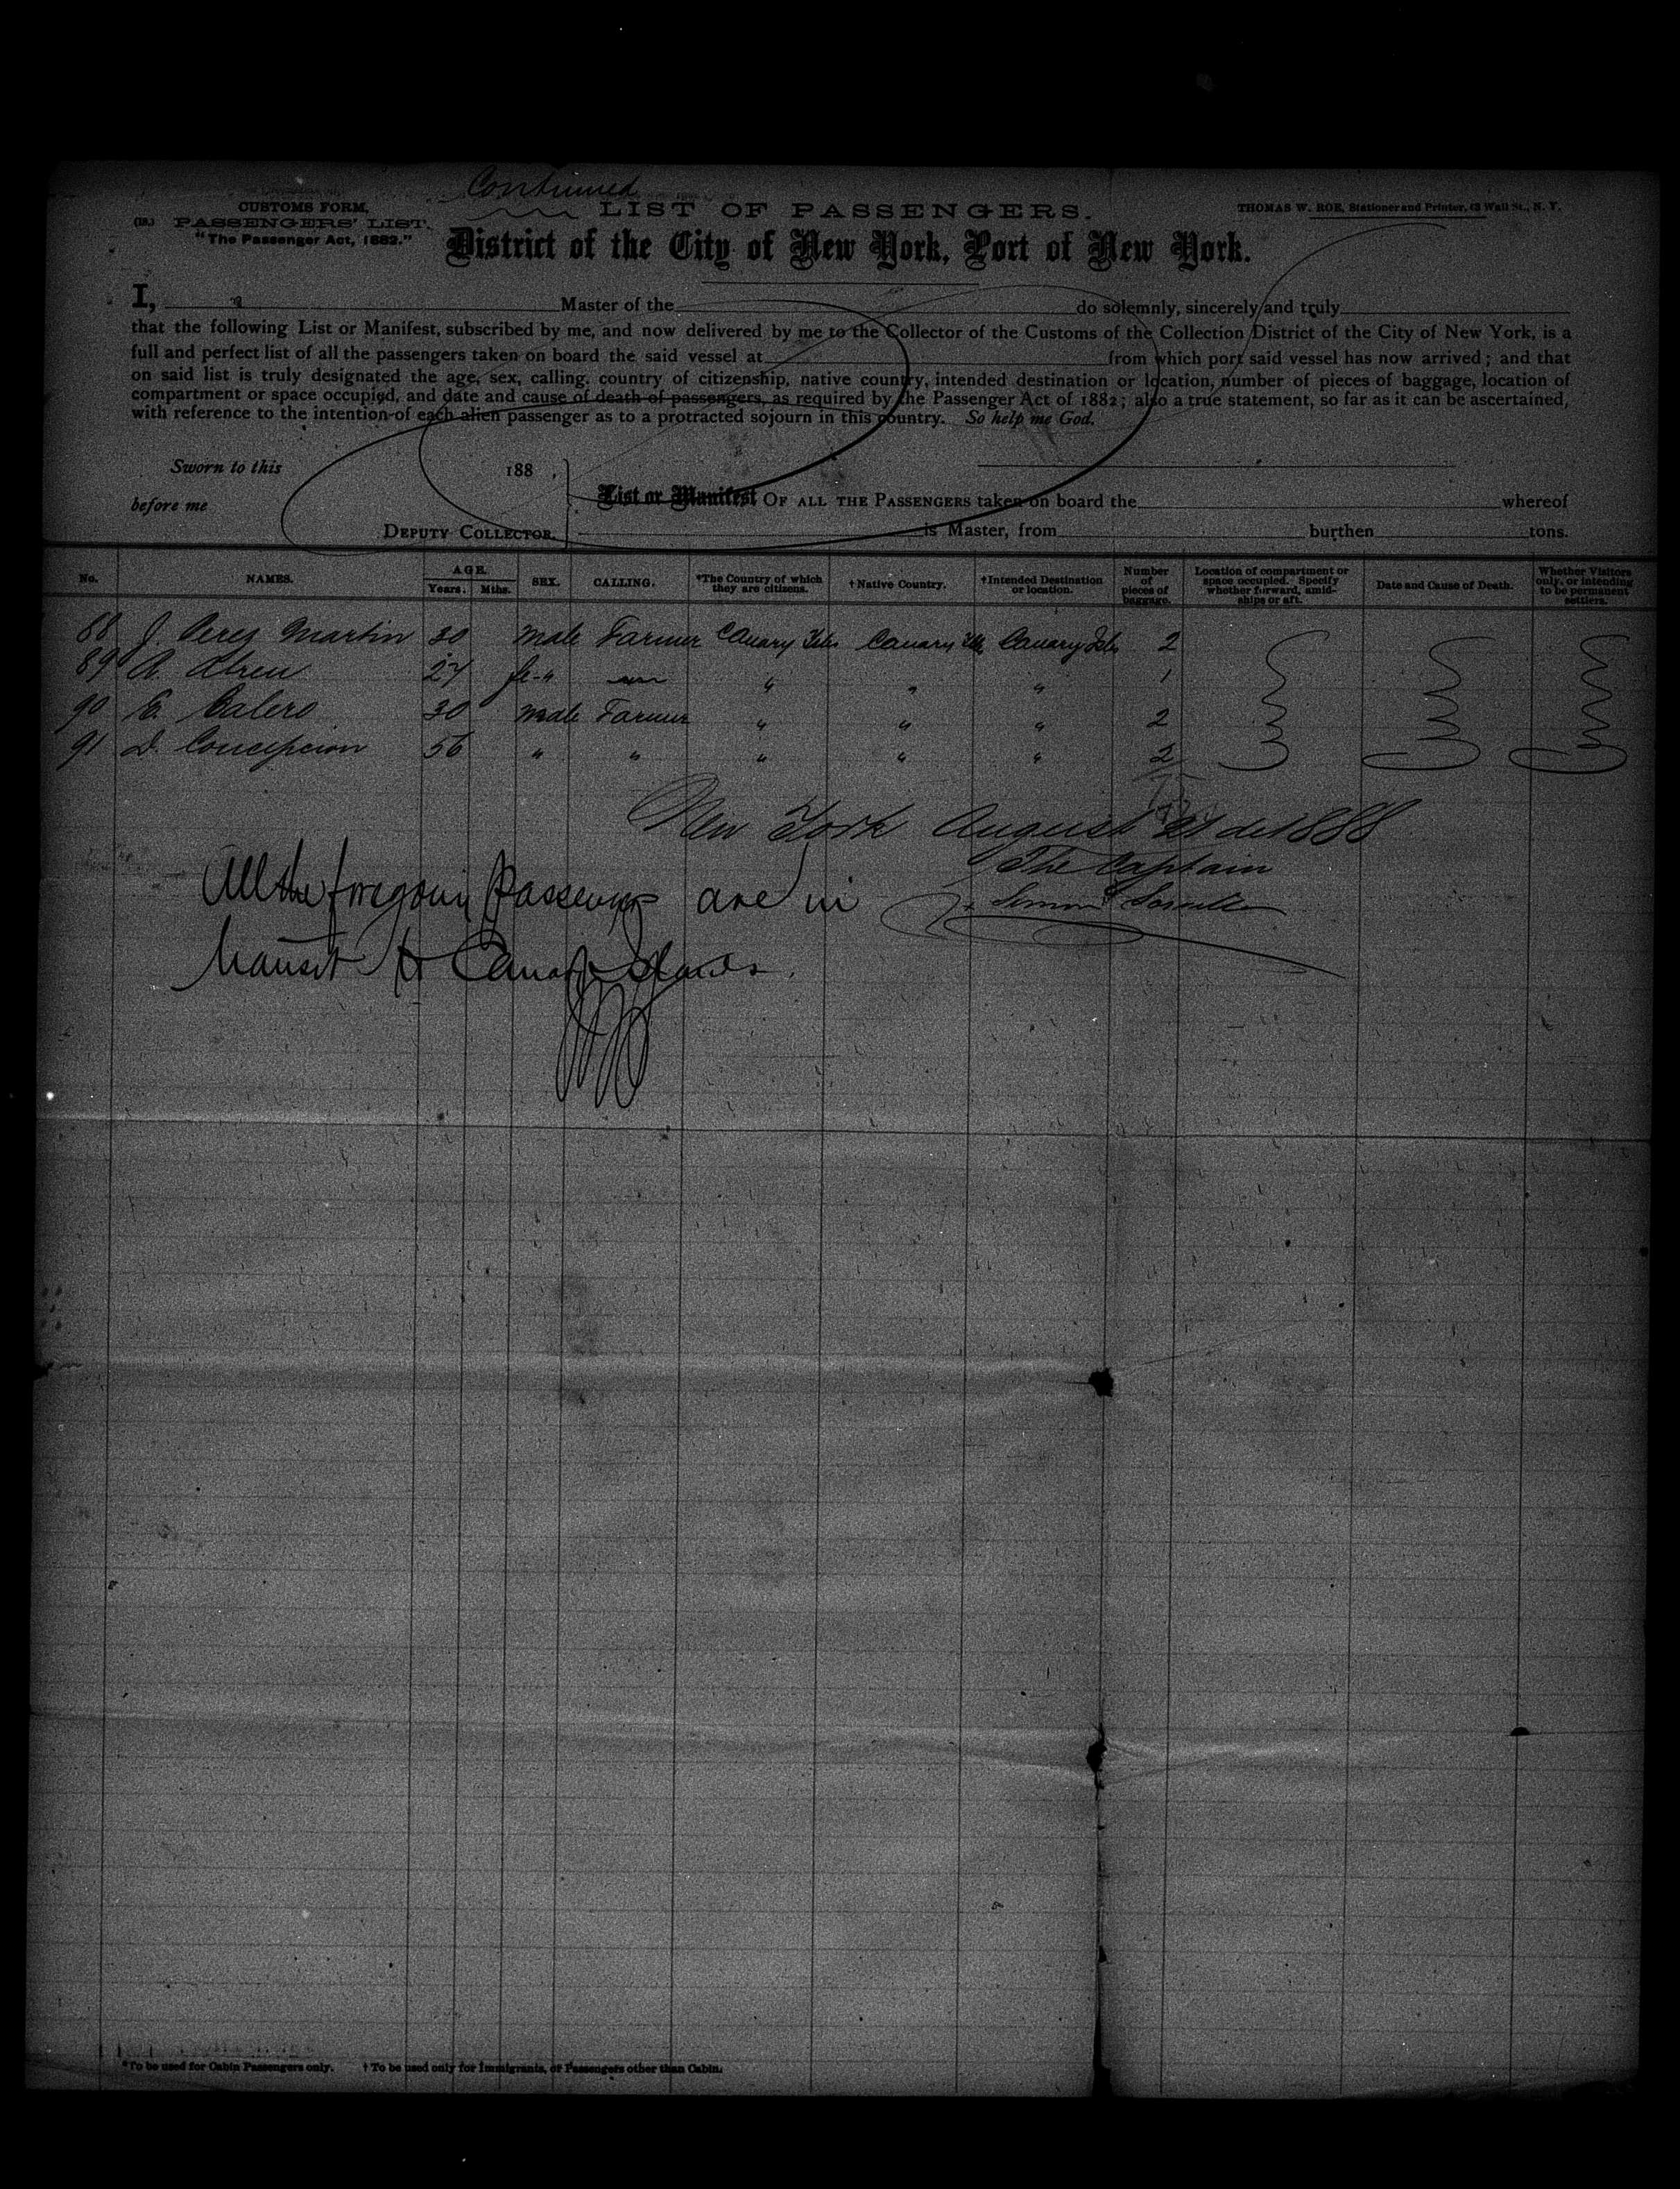 Continued
CUSTOMS FORM,
PASSENGERS' LIST.
"The Passenger Act, 1882."
LIST OF PASSENGERS.
THOMAS W. ROE, Stationer and Printer, 12 Wall St., N. Y.
District of the City of New York, Port of New York.
I, Master of the do solemnly, sincerely and truly
that the following List or Manifest, subscribed by me, and now delivered by me to the Collector of the Customs of the Collection District of the City of New York, is a
full and perfect list of all the passengers taken on board the said vessel at from which port said vessel has now arrived; and that
on said list is truly designated the age, sex, calling, country of citizenship, native country, intended destination or location, number of pieces of baggage, location of
compartment or space occupied, and date and cause of death of passengers, as required by the Passenger Act of 1882; also a true statement, so far as it can be ascertained,
with reference to the intention of each alien passenger as to a protracted sojourn in this country. So help me God.
Sworn to this 188
before me
DEPUTY COLLECTOR.
List or Manifest OF ALL THE PASSENGERS taken on board the whereof
is Master, from burthen tons.
No. NAMES. AGE. Years. Mths. SEX. CALLING. *The Country of which they are citizens. †Native Country. †Intended Destination or location. Number of pieces of baggage. Location of compartment or space occupied. Specify whether forward, amidships or aft. Date and Cause of Death. Whether Visitors only, or intending to be permanent settlers.
88 J. Perez Martin 30 Male Farmer Canary Isles Canary Isles Canary Isles 2
89 A. Abreu 27 fe-" " " " 1
90 E. Calero 30 Male Farmer " " " 2
91 D. Concepcion 56 " " " " " 2
New York August 21 de 1888
The Captain
All the foregoing passengers are in
transit to Canary Islands.
*To be used for Cabin Passengers only. †To be used only for Immigrants, or Passengers other than Cabin.